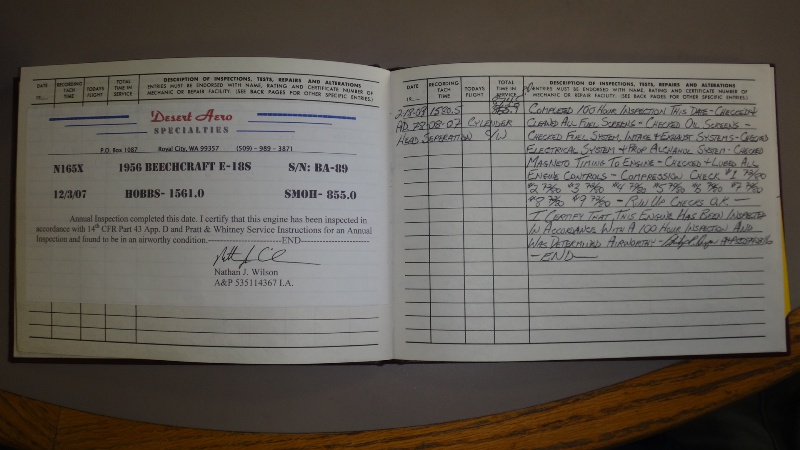 DATE
19......
RECORDING
TACH
TIME
TODAYS
FLIGHT
TOTAL
TIME IN
SERVICE
DESCRIPTION OF INSPECTIONS, TESTS, REPAIRS AND ALTERATIONS
ENTRIES MUST BE ENDORSED WITH NAME, RATING AND CERTIFICATE NUMBER OF
MECHANIC OR REPAIR FACILITY. (SEE BACK PAGES FOR OTHER SPECIFIC ENTRIES.)
Desert Aero
SPECIALTIES
P.O. Box 1087 Royal City, WA 99357 (509) - 989 - 3871
N165X 1956 BEECHCRAFT E-18S S/N: BA-89
12/3/07 HOBBS- 1561.0 SMOH- 855.0
Annual Inspection completed this date. I certify that this engine has been inspected in
accordance with 14th CFR Part 43 App. D and Pratt & Whitney Service Instructions for an Annual
Inspection and found to be in an airworthy condition.--------------------END--------------------
Nathan J. Wilson
A&P 535114367 I.A.
DATE
19......
RECORDING
TACH
TIME
TODAYS
FLIGHT
TOTAL
TIME IN
SERVICE
DESCRIPTION OF INSPECTIONS, TESTS, REPAIRS AND ALTERATIONS
ENTRIES MUST BE ENDORSED WITH NAME, RATING AND CERTIFICATE NUMBER OF
MECHANIC OR REPAIR FACILITY. (SEE BACK PAGES FOR OTHER SPECIFIC ENTRIES.)
2/18-09 1580.5
AD 78-08-07 CYLENDER
HEAD SEPERATION C/W
COMPLETED 100 HOUR INSPECTION THIS DATE - CHECKED &
CLEANED ALL FUEL SCREENS - CHECKED OIL SCREENS -
CHECKED FUEL SYSTEM, INTAKE & EXHAUST SYSTEMS - CHECKED
ELECTRICAL SYSTEM & PROP ALCHANOL SYSTEM - CHECKED
MAGNETO TIMING TO ENGINE - CHECKED & LUBED ALL
ENGINE CONTROLS - COMPRESSION CHECK #1
#2 #3 #4 #5 #6 #7
#8 #9 - RUN UP CHECKS O.K. -
I CERTIFY THAT THIS ENGINE HAS BEEN INSPECTED
IN ACCORDANCE WITH A 100 HOUR INSPECTION AND
WAS DETERMINED AIRWORTHY
- END -